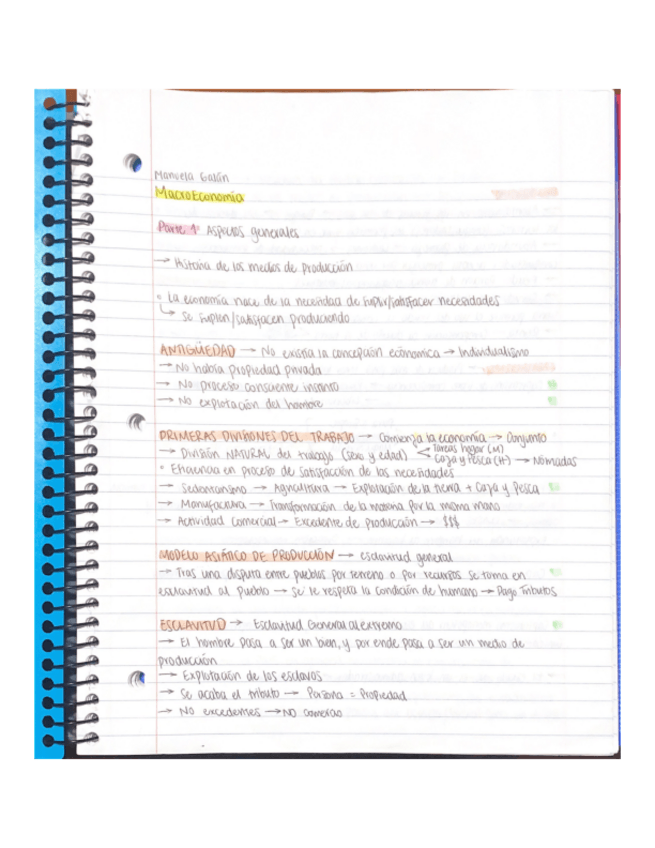 Manuela Galán
MacroEconomía
Parte 1 Aspectos generales
→ Historia de los medios de producción
• La economía nace de la necesidad de suplir/satisfacer necesidades
↳ se suplen/satisfacen produciendo
ANTIGÜEDAD → No existía la concepción económica → Individualismo
→ No había propiedad privada
→ No proceso consciente instinto
→ No explotación del hombre
PRIMERAS DIVISIONES DEL TRABAJO → Comienza la economía → Conjunto
→ División NATURAL del trabajo (sexo y edad) < Tareas hogar (M)
Caza y Pesca (H) → Nómadas
• Eficiencia en proceso de satisfacción de las necesidades
→ Sedentarismo → Agricultura → Explotación de la tierra + Caza y Pesca
→ Manufactura → Transformación de la materia por la misma mano
→ Actividad Comercial → Excedente de producción → $$$
MODELO ASIÁTICO DE PRODUCCIÓN → esclavitud general
→ Tras una disputa entre pueblos por terreno o por recursos se toma en
esclavitud al pueblo → Se le respeta la condición de humano → Pago Tributos
ESCLAVITUD → Esclavitud General al extremo
→ El hombre pasa a ser un bien, y por ende pasa a ser un medio de
producción
→ Explotación de los esclavos
→ Se acaba el tributo → Persona = Propiedad
→ No excedentes → NO comercio